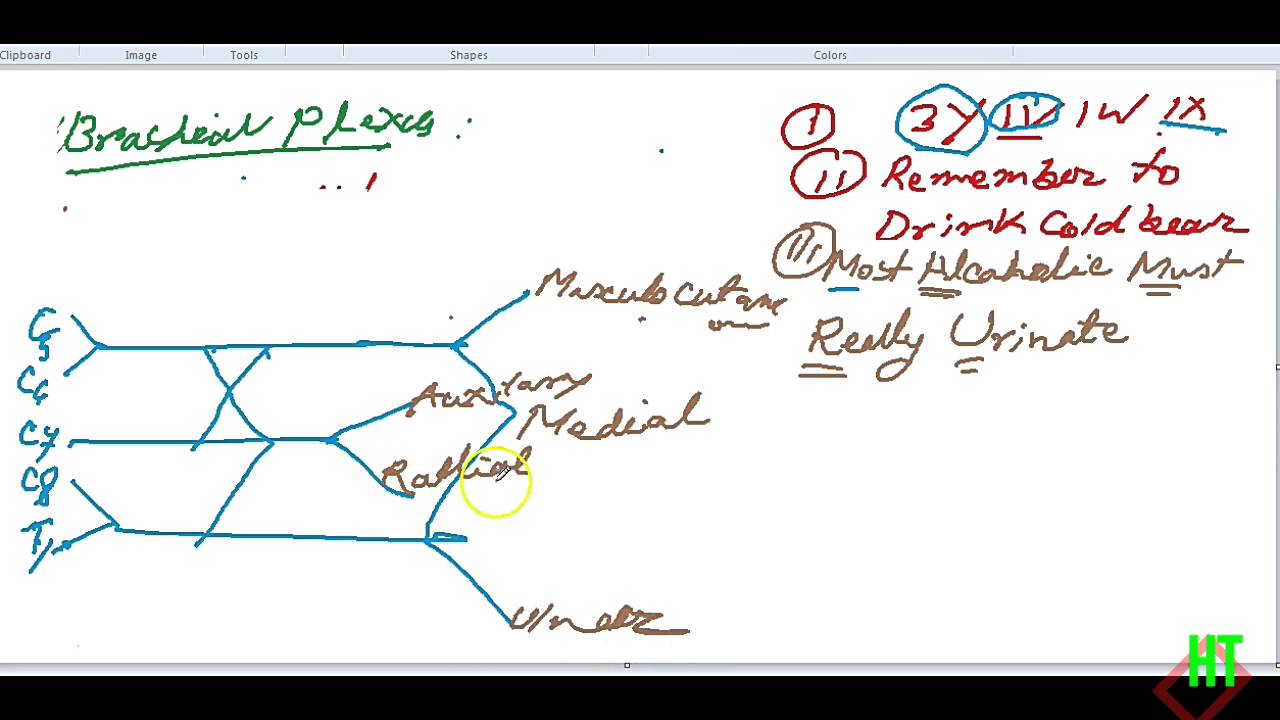 Clipboard Image Tools Shapes Colors
Brachial Plexus :
I 3Y 1V 1W 1X
II Remember to
Drink Cold bear
III Most Alcaholic Must
Really Urinate
Musculocutane
C5
C6
Auxilary
Medial
C7
Radial
C8
T1
Ulnar
HT